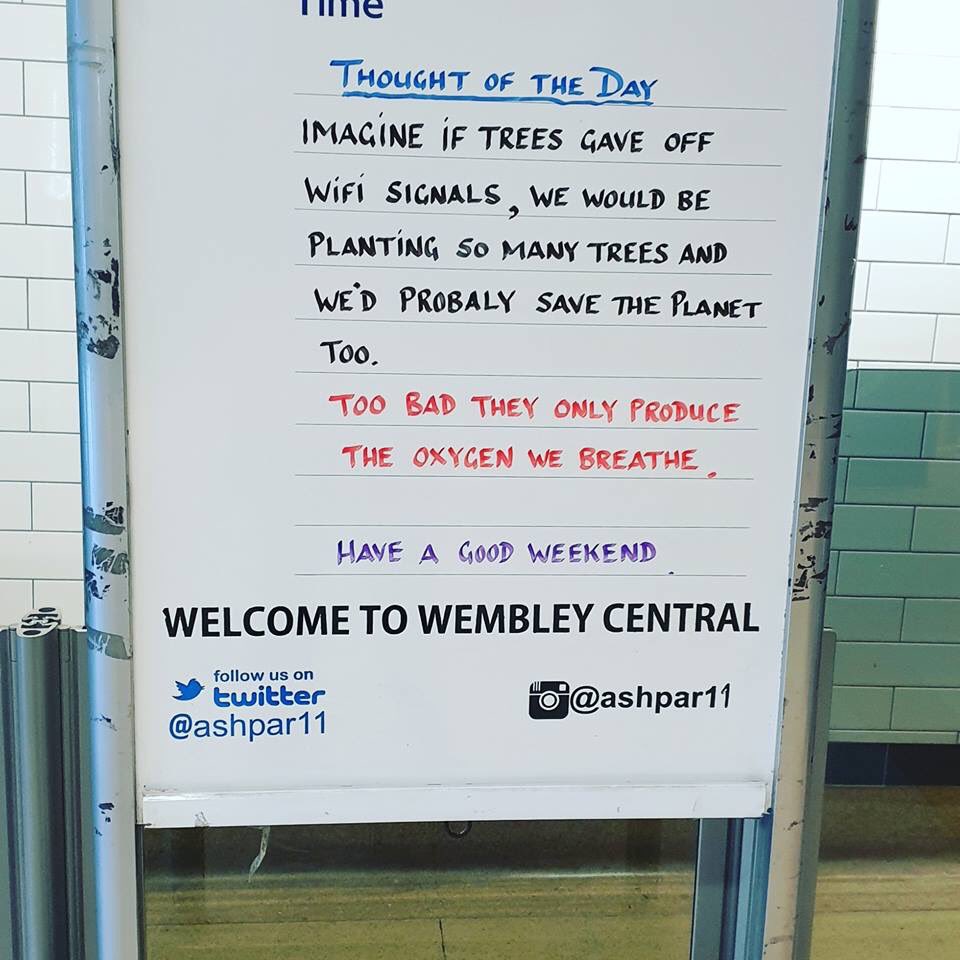 Time
THOUGHT OF THE DAY
IMAGINE IF TREES GAVE OFF
WIFI SIGNALS, WE WOULD BE
PLANTING SO MANY TREES AND
WE'D PROBALY SAVE THE PLANET
TOO.
TOO BAD THEY ONLY PRODUCE
THE OXYGEN WE BREATHE.
HAVE A GOOD WEEKEND.
WELCOME TO WEMBLEY CENTRAL
follow us on
twitter
@ashpar11
@ashpar11